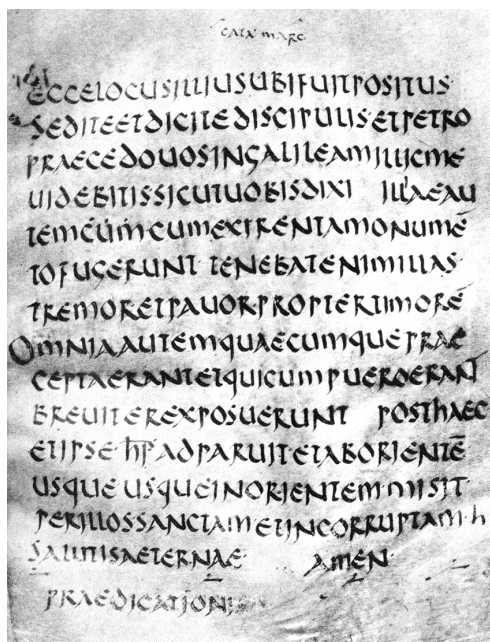 CATA MARC
ECCELOCUSILLIUSUBIFUITPOSITUS
SEDITEETDICITEDISCIPULISETPETRO
PRAECEDOUOSINGALILEAMILLICME
UIDEBITISSICUTUOBISDIXI ILLAEAU
TEMCUMCUMEXIRENTAMONUMĒ
TOFUGERUNT TENEBATENIMILLAS
TREMORETPAUORPROPTERTIMORĒ
OMNIAAUTEMQUAECUMQUEPRAE
CEPTAERANTETQUICUMPUEROERANT
BREUITEREXPOSUERUNT POSTHAEC
ETIPSE ADPARUITETABORIENTĒ
USQUE USQUEINORIENTEM MISIT
PERILLOSSANCTAMETINCORRUPTAM·H
SALUTISAETERNAE AMEN
PRAEDICATIONIS